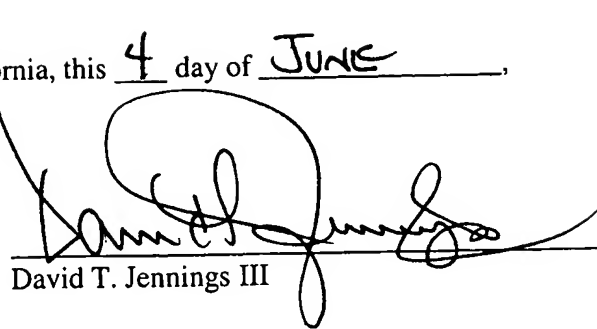 ornia, this 4 day of JUNE,
David T. Jennings
David T. Jennings III